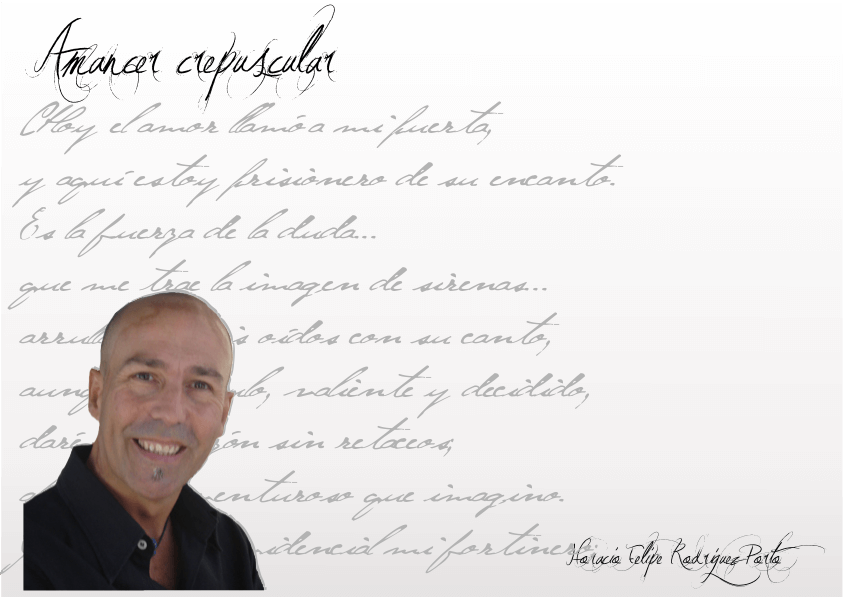 Amancer crepuscular
Hoy el amor llamó a mi puerta,
y aquí estoy prisionero de su encanto.
Es la fuerza de la duda...
que me trae la imagen de sirenas...
oídos con su canto,
valiente y decidido,
sin retaceos,
que imagino.
mi
Horacio Felipe Rodríguez Porto